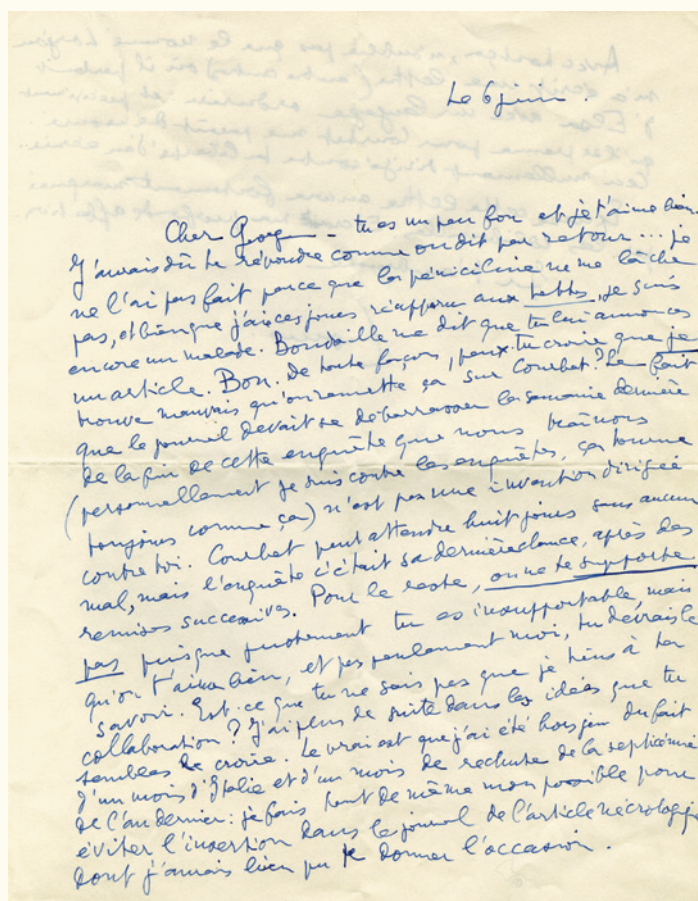 Le 6 juin.
Cher Georg — tu es un peu fou et je t'aime bien.
J'aurais dû te répondre comme on dit par retour... je
ne l'ai pas fait parce que la péniciline ne me lâche
pas, et bien que j'aie ces jours réapparu aux lettres, je suis
encore un malade. Boudaille me dit que tu lui annonces
un article. Bon. De toute façon, peux-tu croire que je
trouve mauvais qu'on remette ça sur Courbet? Le fait
que le journal devait se débarrasser la semaine dernière
de la fin de cette enquête que nous traînons
(personnellement je suis contre les enquêtes, ça tourne
toujours comme ça) n'est pas une invention dirigée
contre toi. Courbet peut attendre huit jours sans aucun
mal, mais l'enquête c'était sa dernière chance, après des
remises successives. Pour le reste, on ne te supporte
pas puisque justement tu es insupportable, mais
qu'on t'aime bien, et pas seulement moi, tu devrais le
savoir. Est-ce que tu ne sais pas que je tiens à ta
collaboration? J'ai plus de suite dans les idées que tu
sembles le croire. Le vrai est que j'ai été hors jeu du fait
d'un mois d'Italie et d'un mois de rechute de la septicémie
de l'an dernier: je fais tout de même mon possible pour
éviter l'insertion dans le journal de l'article nécrologique
dont j'aurais bien pu te donner l'occasion.